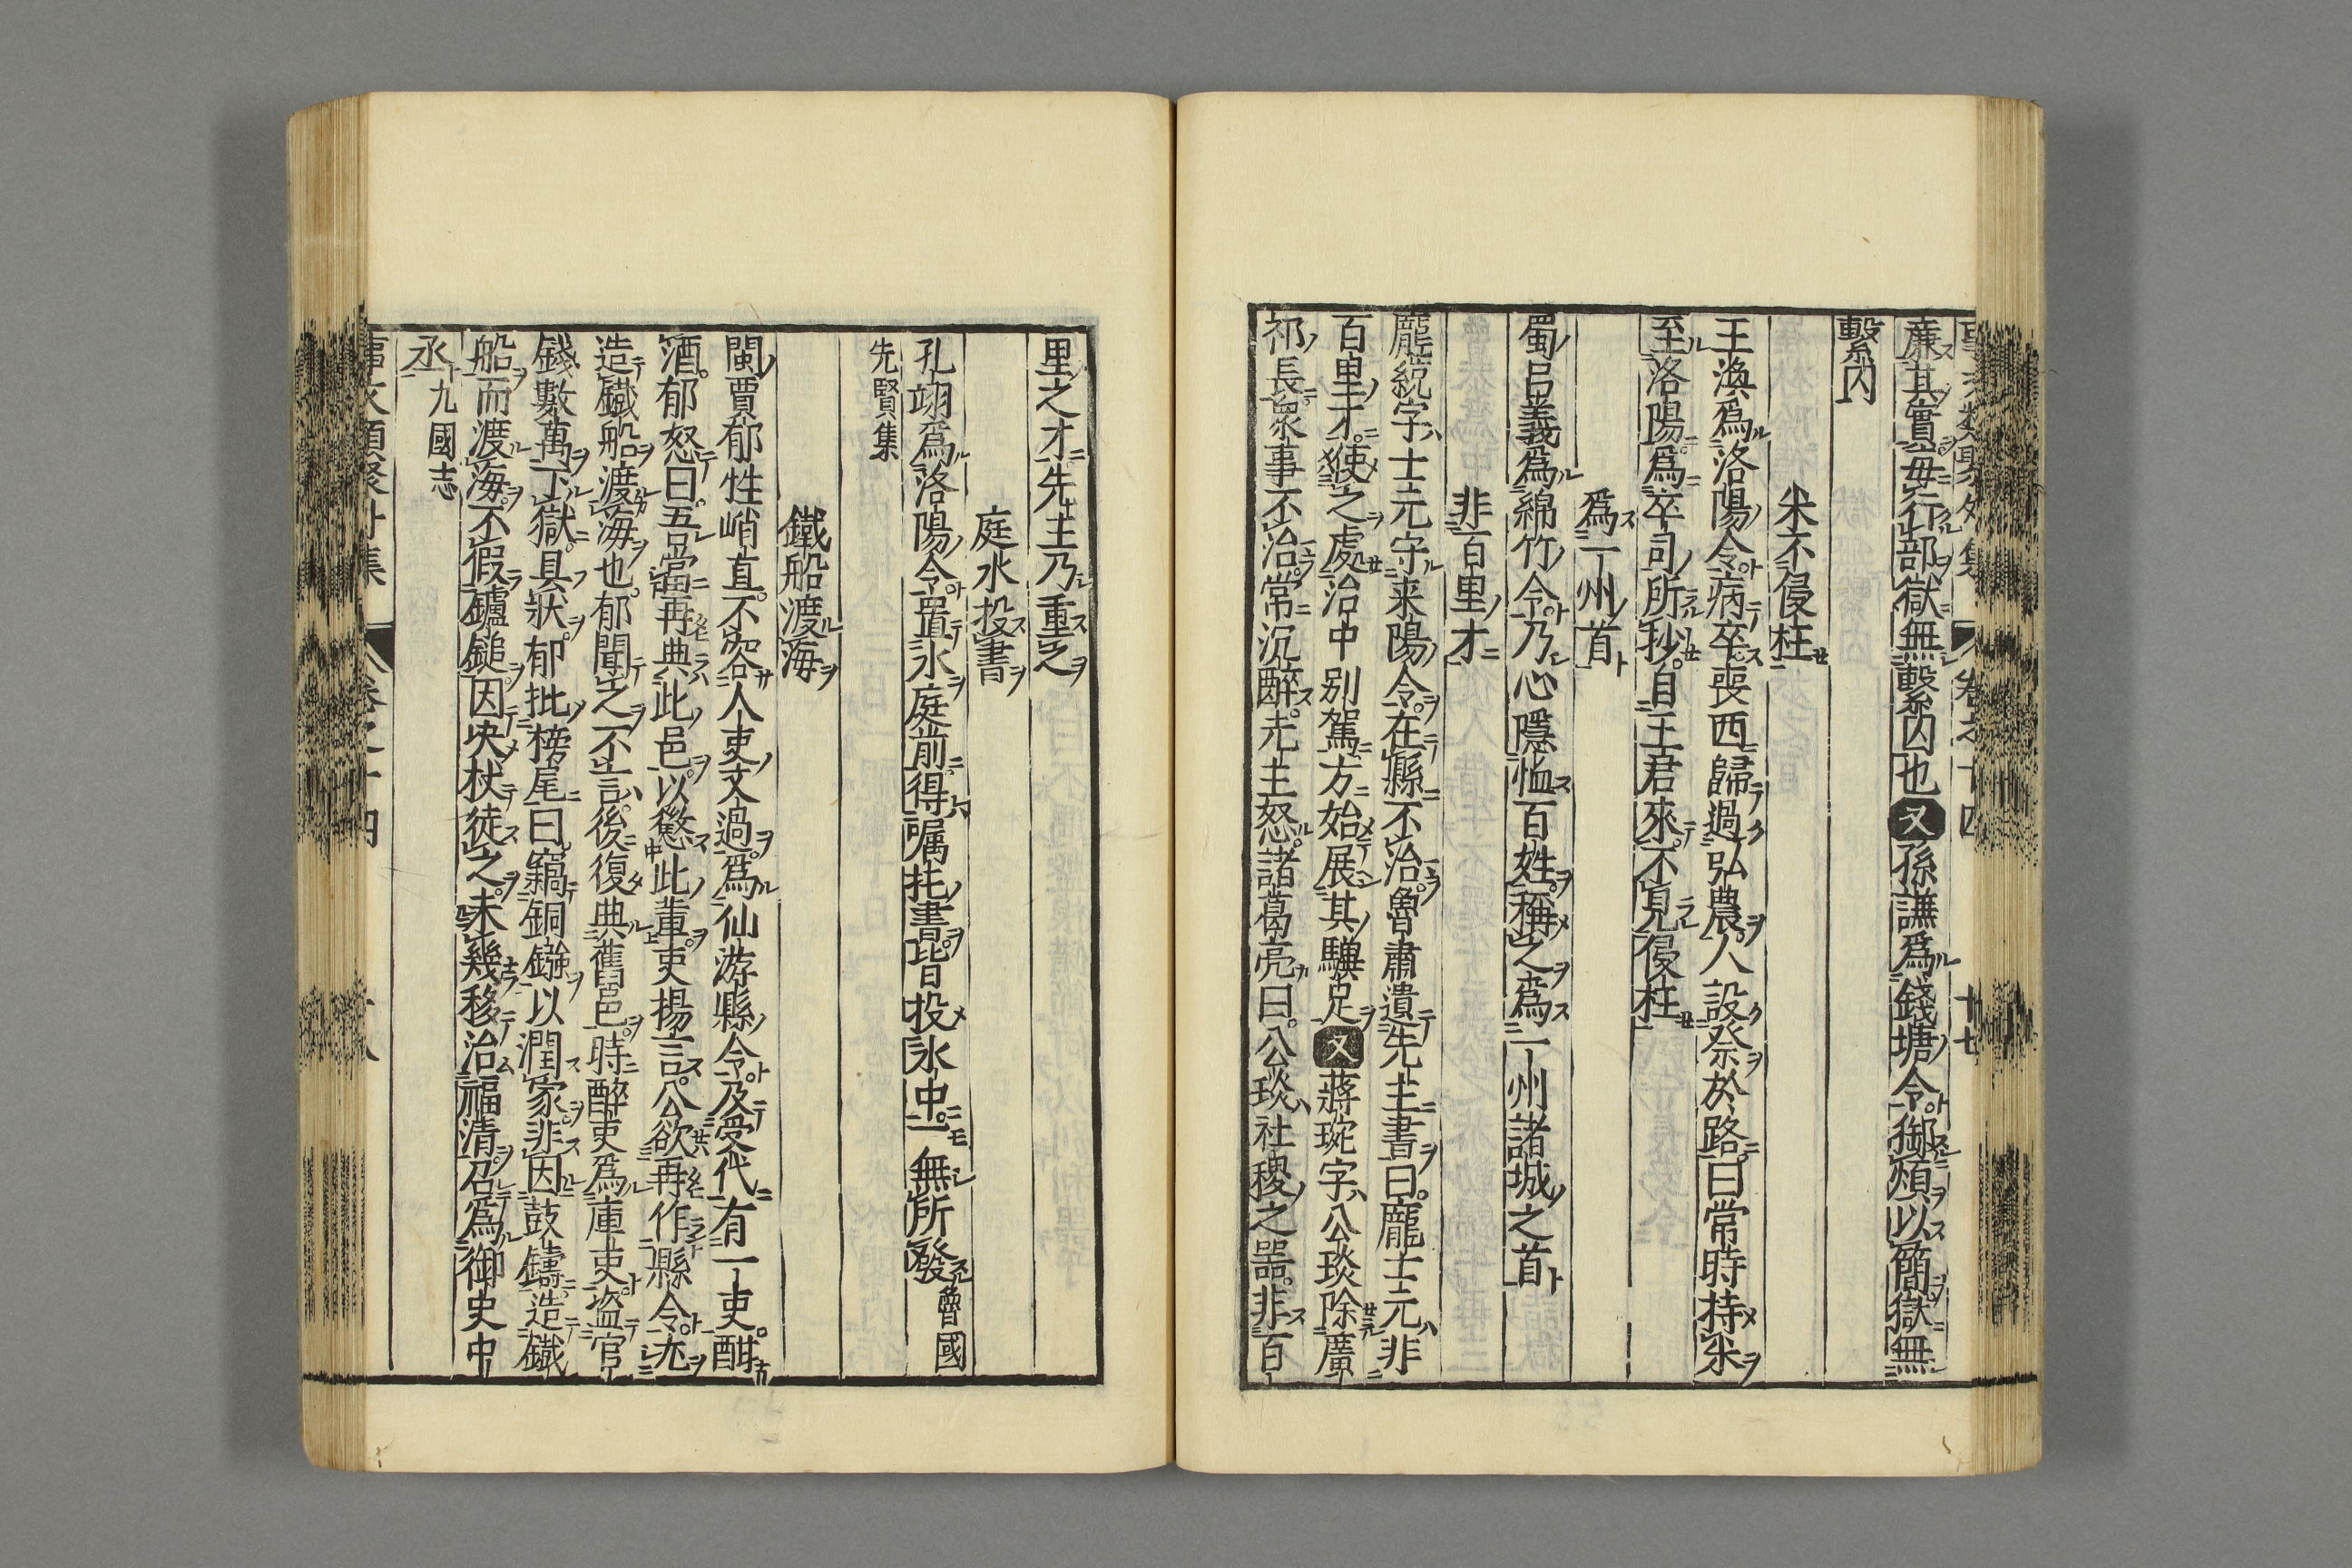 廉其實毋行部獄無繫囚也又孫謙爲錢塘令御煩以簡獄無
繫囚
米不侵枉
王渙爲洛陽令病卒喪西歸過弘農人設祭於路曰常時持米
至洛陽爲卒司所抄自王君來不見侵枉
爲一州首
蜀呂義爲綿竹令乃心隱恤百姓稱之爲一州諸城之首
非百里才
龐統字士元守来陽令在縣不治魯肅遺先主書曰龐士元非
百里才使之處治中別駕方始展其驥足又蔣琬字公琰除廣
祁長衆事不治常沉醉先主怒諸葛亮曰公琰社稷之器非百
里之才先主乃重之
庭水投書
孔翊爲洛陽令置水庭前得囑托書皆投水中一無所發魯國
先賢集
鐵船渡海
閩賈郁性峭直不容人吏文過爲仙游縣令及受代有一吏酣
酒郁怒曰吾當再典此邑以懲此輩吏揚言公欲再作縣令尤
造鐵船渡海也郁聞之不言後復典舊邑時醉吏爲庫吏盜官
錢數萬下獄具狀郁批榜尾曰竊銅鏹以潤家非因鼓鑄造鐵
船而渡海不假鑪鎚因决杖徒之未幾移治福清召爲御史中
丞九國志